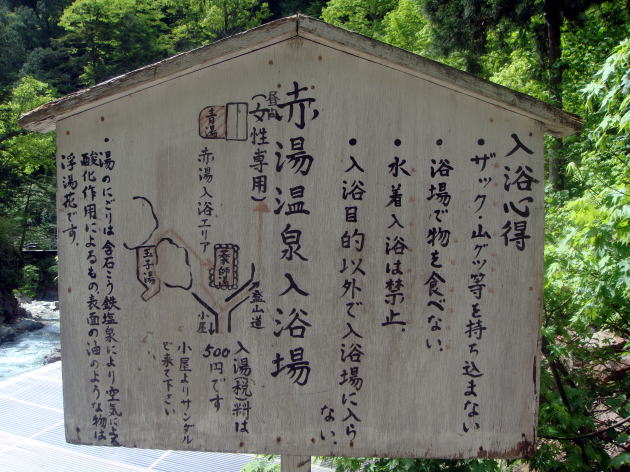 入浴心得
・ザック・山グツ等を持ち込まない
・浴場で物を食べない。
・水着入浴は禁止
・入浴目的以外で入浴場に入ら
ない。
赤湯温泉入浴場
昼間
(女性専用)
青湯
赤湯入浴エリア
薬師湯
玉子湯
登山道
小屋
入湯(税)料は
500円です
小屋よりサンダル
で来て下さい
・湯のにごりは含石こう鉄塩泉により空気に
酸化作用によるもの表面の油のような物は
浮湯花です。